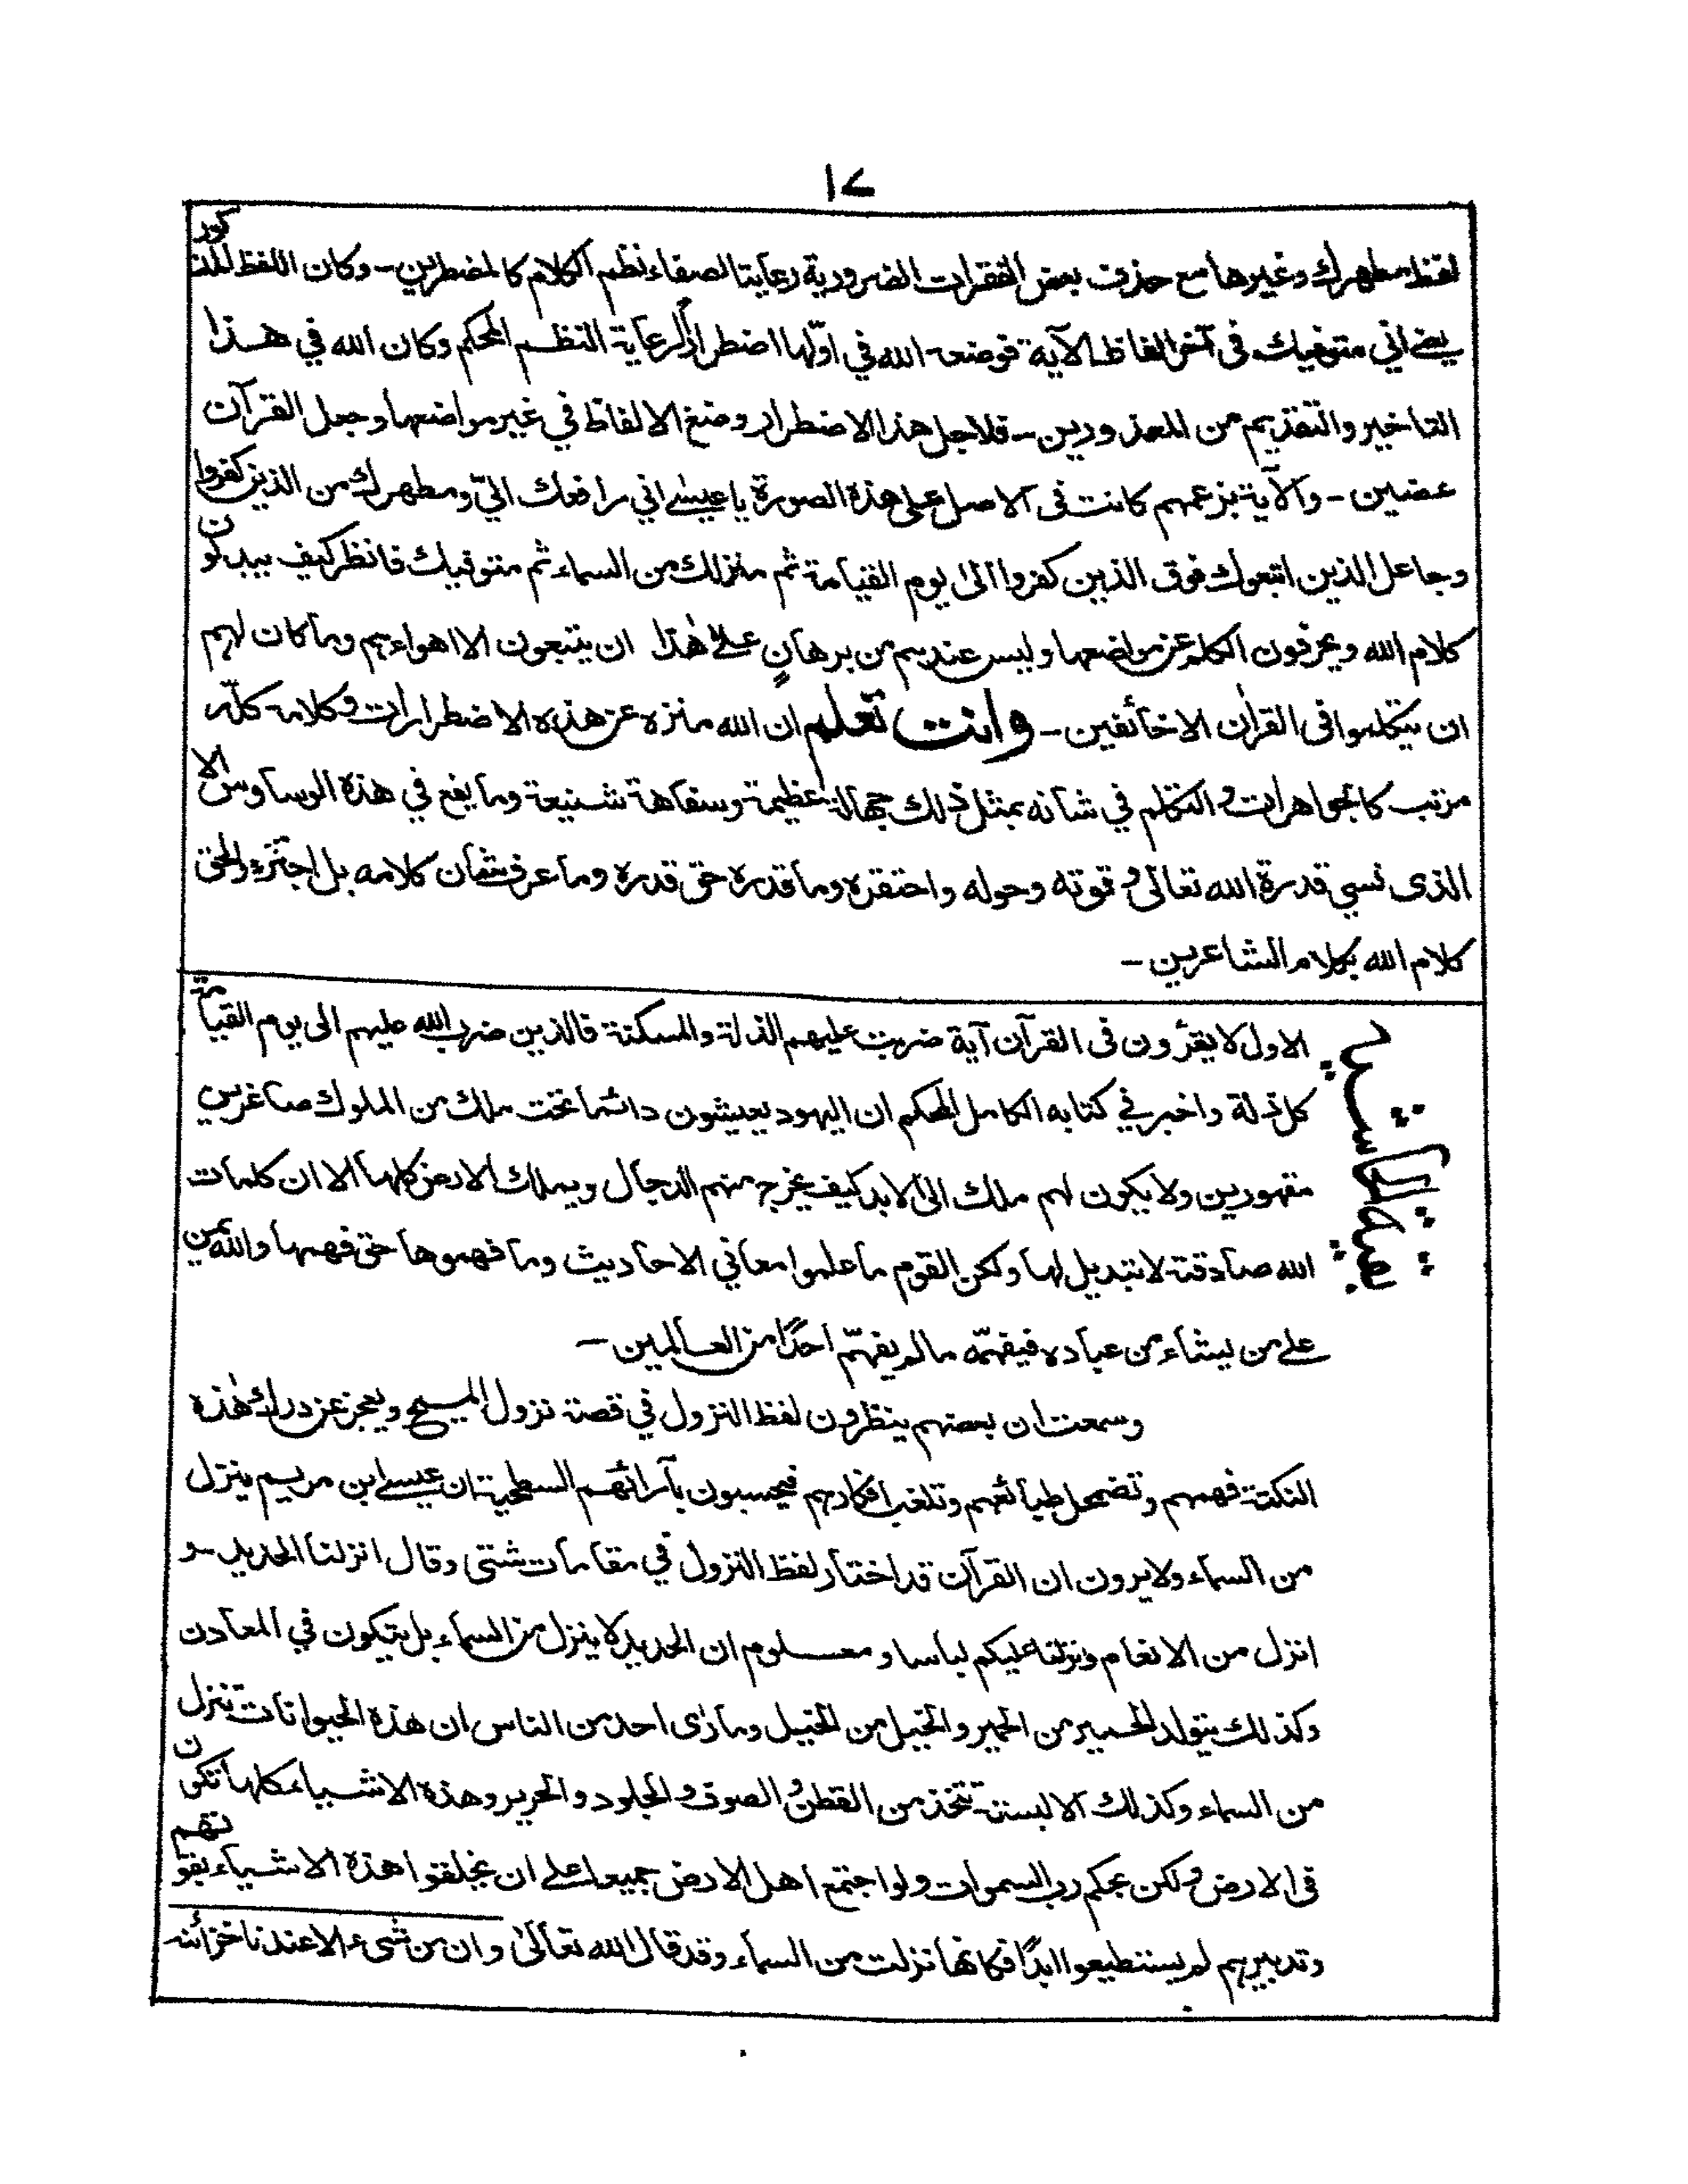 ١٧
لفظ مطهرك وغيرها مع حذف بعض الفقرات الضرورية رعايتا لصفاء نظم الكلام كالمضطرين - وكان اللفظ المذكور
يعني اني متوفيك في آخر الفاظ الآية فوضعه الله في اوّلها اضطرارًا لرعاية النظم المحكم وكان الله في هذا
التاخير والتقديم من المعذورين - فلاجل هذا الاضطرار وضع الالفاظ في غير مواضعها وجعل القرآن
عضين - والآية بزعمهم كانت في الاصل على هذه الصورة يا عيسى اني رافعك اليّ ومطهرك من الذين كفروا
وجاعل الذين اتبعوك فوق الذين كفروا الى يوم القيامة ثم منزلك من السماء ثم متوفيك فانظر كيف يبدلون
كلام الله ويحرفون الكلم عن مواضعها وليس عندهم من برهانٍ على هٰذا ان يتبعون الا اهواءهم وما كان لهم
ان يتكلموا فى القرآن الا خائفين - وانت تعلم ان الله منزه عن هذه الاضطرارات وكلامه كلّه
مرتب كالجواهرات والتكلم في شأنه بمثل ذلك جهالة عظيمة وسفاهة شنيعة وما يقع في هذه الوساوس الا
الذى نسي قدرة الله تعالى وقوته وحوله واحتقره وما قدره حق قدره وما عرف شان كلامه بل اجترء والحق
كلام الله بكلام الشاعرين -
الاول لا يقرؤن فى القرآن آية ضربت عليهم الذلة والمسكنة فالذين ضرب الله عليهم الى يوم القيامة
كل ذلة واخبر في كتابه الكامل المحكم ان اليهود يعيشون دائما تحت ملك من الملوك صاغرين
مقهورين ولا يكون لهم ملك الى الابد كيف يخرج منهم الدجال ويملك الارض كلها الا ان كلمات
الله صادقة لا تبديل لها ولكن القوم ما علموا معاني الاحاديث وما فهموها حق فهمها والله يمن
على من يشاء من عباده فيفهّمه ما لم يفهّم احدًا من العالمين -
وسمعت ان بعضهم ينظرون لفظ النزول في قصة نزول المسيح ويعجز عن درك هٰذه
النكتة فهمهم وتضمحل طبائعهم وتلغب افكارهم فيحسبون بآرائهم السطحية ان عيسى ابن مريم ينزل
من السماء ولا يرون ان القرآن قد اختار لفظ النزول في مقامات شتى وقال انزلنا الحديد - و
انزل من الانعام ونزلنا عليكم لباسا ومعلوم ان الحديد لا ينزل من السماء بل يتكون في المعادن
وكذلك يتولد الحمير من الحمير والخيل من الخيل وما رٰى احد من الناس ان هذه الحيوانات تنزل
من السماء وكذلك الالبسة تتخذ من القطن والصوف والجلود والحرير وهذه الاشياء كلها تكون
فى الارض ولكن بحكم رب السموات ولو اجتمع اهل الارض جميعا على ان يخلقوا هذه الاشياء بقوتهم
وتدبيرهم لم يستطيعوا ابدًا فكانها نزلت من السماء وقد قال الله تعالى وان من شىء الا عندنا خزائنه